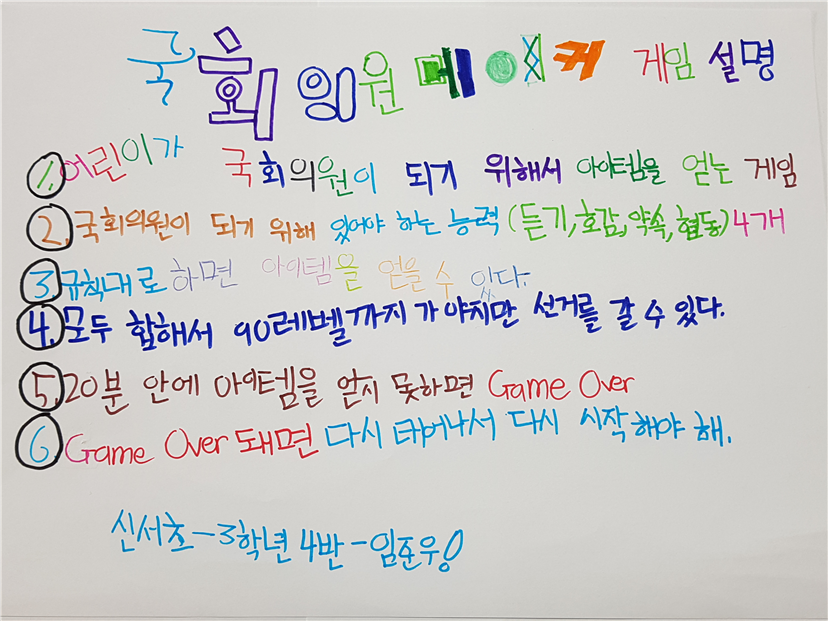 국회잉원메이커 게임 설명
1. 어린이가 국회의원이 되기 위해서 아이템을 얻는 게임
2. 국회의원이 되기 위해 있어야 하는 능력 (듣기, 호감, 약속, 협동) 4개
3. 규칙대로 하면 아이템을 얻을 수 있다.
4. 모두 합해서 90레벨까지 가야지만 선거를 갈 수 있다.
5. 20분 안에 아이템을 얻지 못하면 Game Over
6. Game Over 돼면 다시 태어나서 다시 시작해야 해.
신서초-3학년 4반-임준우